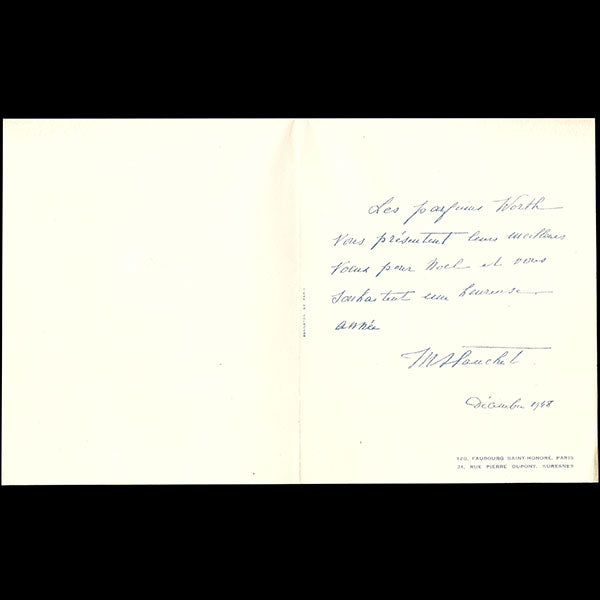 Les parfums Worth
vous présentent leurs meilleurs
vœux pour Noel et vous
souhaitent une heureuse
année
Décembre 1948
120, FAUBOURG SAINT-HONORÉ, PARIS
21, RUE PIERRE DUPONT, SURESNES